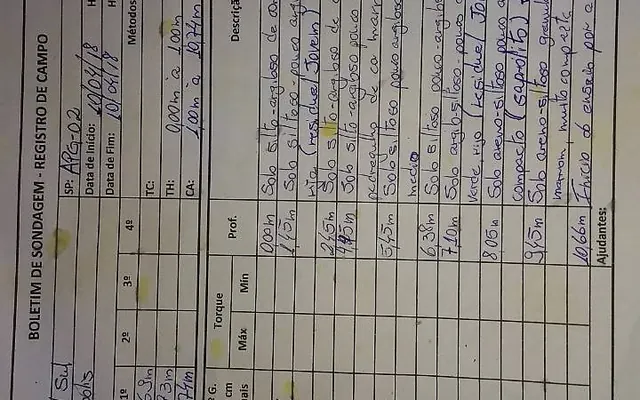 BOLETIM DE SONDAGEM - REGISTRO DE CAMPO
Sul
SP: APG-02
Data de Início: 10/04/18 H
Data de Fim: 10/04/18 H
1º 2º 3º 4º Métodos
TC:
TH: 0,00m à 1,00m
74m CA: 1,00m à 10,74m
P G. Torque Prof. Descriçã
cm Máx Min
iais
0,00m Solo silto-argiloso de
Solo siltoso pouco
(residual Jovem)
2,45m Solo silto-argiloso de
Solo silto-argiloso pouco
pedregulho de
5,45m Solo siltoso pouco argiloso
medio
6,38m Solo siltoso pouco-argiloso
7,10m Solo argilo-siltoso-pouco
verde, rijo (residual Jo
8,05m Solo areno-siltoso pouco
compacto (saprolito)
9,45m Solo areno-siltoso
marrom, muito compacto
10,66m Início do ensaio por
Ajudantes: